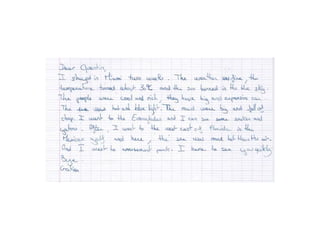 Dear Quentin,
I stayed in Miami two weeks. The weather was fine, the
temperature turned about 30°C and the sun burned in the blue sky.
The people were cool and rich, they have big and expensive car.
The sea was hot and blue light. The road were big and full of
shop. I went to the Everglades and I can see some snakes and
. Often, I went to the west coast of Florida in the
Mexican gulf and here, the sea was more hot than the
And I went to amusement park. I hope to see you quickly
Bye